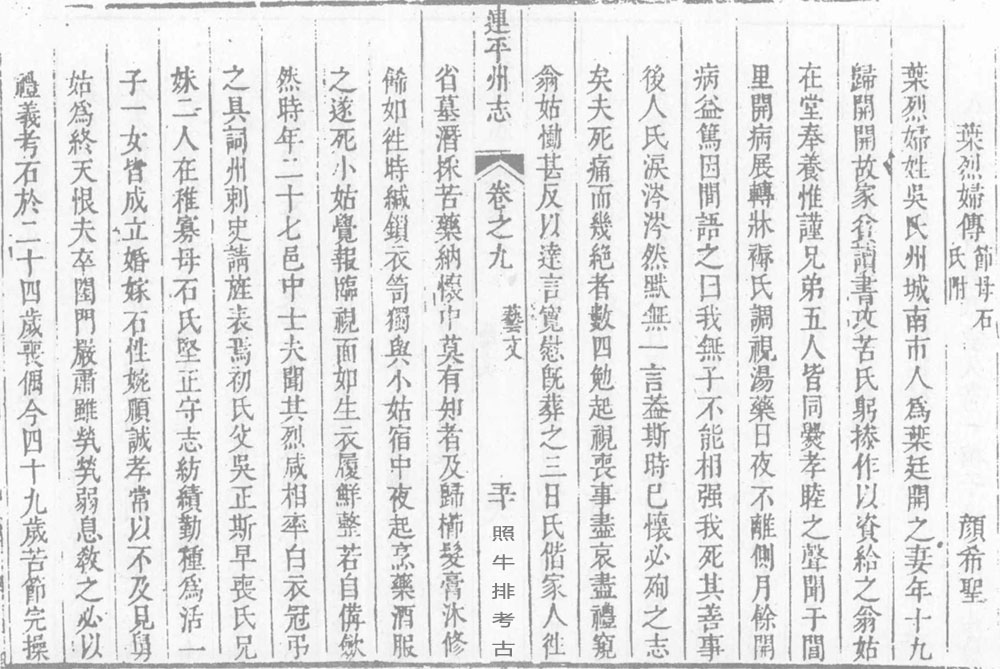 葉烈婦傳 節母石氏附 顔希聖
葉烈婦姓吳氏州城南市人為葉廷開之妻年十九
歸開開故家貧讀書攻苦氏躬操作以資給之翁姑
在堂奉養惟謹兄弟五人皆同爨孝睦之聲聞于閭
里開病展轉牀褥氏調視湯藥日夜不離側月餘開
病益篤因間語之曰我無子不能相强我死其善事
後人氏淚涔涔然默無一言葢斯時已懷必殉之志
矣夫死痛而幾絕者數四勉起視喪事盡哀盡禮窺
翁姑慟甚反以達言寛慰旣葬之三日氏偕家人徃
連平州志 卷之九 藝文 照牛排考古
省墓潛採苦藥納懷中莫有知者及歸櫛髮膏沐修
餙如徃時緘鎖衣笥獨與小姑宿中夜起烹藥酒服
之遂死小姑覺報臨視面如生衣履鮮整若自備斂
然時年二十七邑中士夫聞其烈咸相率白衣冠弔
之具詞州刺史請旌表焉初氏父吳正斯早喪氏兄
妹二人在稚寡母石氏堅正守志紡績勤種為活一
子一女皆成立婚嫁石性婉順誠孝常以不及見舅
姑為終天恨夫卒閨門嚴肅雖煢煢弱息敎之必以
禮義考石於二十四歲喪偶今四十九歲苦節完操